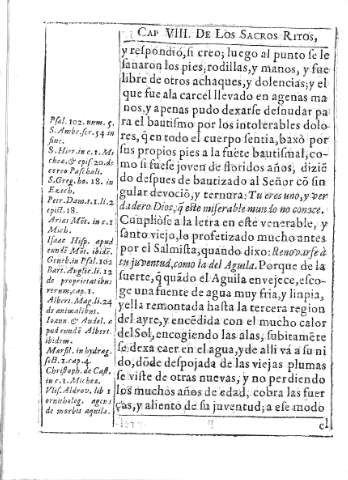 CAP VIII. DE LOS SACROS RITOS,
y respondió, si creo; luego al punto se le
sanaron los pies, rodillas, y manos, y fue
libre de otros achaques, y dolencias; y el
que fue ala carcel llevado en agenas ma
nos, y apenas pudo dexarse desnudar pa
ra el bautismo por los intolerables dolo-
res, q̃ en todo el cuerpo sentia, baxò por
sus propios pies a la fuẽte bautismal, co-
mo si fuese joven de floridos años, diziẽ
do despues de bautizado al Señor cõ sin
gular devociõ, y ternura: Tu eres uno, y ver
dadero Dios, q̃ este miserable mundo no conoce.
Cũuplióse a la letra en este venerable, y
santo viejo, lo profetizado mucho antes
por el Salmista, quando dixo: Renovarse à
tu juventud, como la del Aguila. Porque de la
suerte, q̃ quãdo el Aguila envejece, esco-
ge una fuente de agua muy fria, y limpia,
y ella remontada hasta la tercera region
del ayre, y encẽdida con el mucho calor
del Sol, encogiendo las alas, subitamẽte
se dexa caer en el agua, y de alli và a su ni
do, dõde despojada de las viejas plumas
se viste de otras nuevas, y no perdiendo
los muchos años de edad, cobra las fuer
ças, y aliento de su juventud; a ese modo
el
Psal. 102. num. 5.
S. Ambr. ser. 54 in
S. Hier. in c. 1. Mi
chea. & epis. 20. de
cereo Paschali.
S. Greg. ho. 18. in
Ezech.
Petr. Dam. s. 1. li. 2
epist. 18.
Arias Mõt. in c. 1
Mich.
Isaac Hisp. apud
eundẽ Mõt. ibidẽ.
Geneb. in Psal. 102
Bart. Anglic. li. 12
de proprietatibus
rerum, cap. 1.
Albert. Mag. li. 24
de animalibus.
Ioann & Andel. a
pud eundẽ Albert.
ibidem.
Marsil. in hydrag.
sect. 2. cap. 4
Christoph. de Cast.
in c. 1. Michea.
Vlis. Aldrov. lib 1
ornitholog. agens
de morbis aquila.